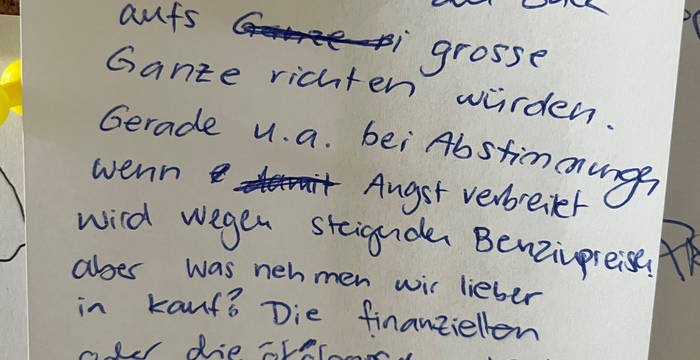 aufs grosse
Ganze richten würden.
Gerade u.a. bei Abstimmungen
wenn damit Angst verbreitet
wird wegen steigender Benzinpreise
aber was nehmen wir lieber
in kauf? Die finanziellen
oder die